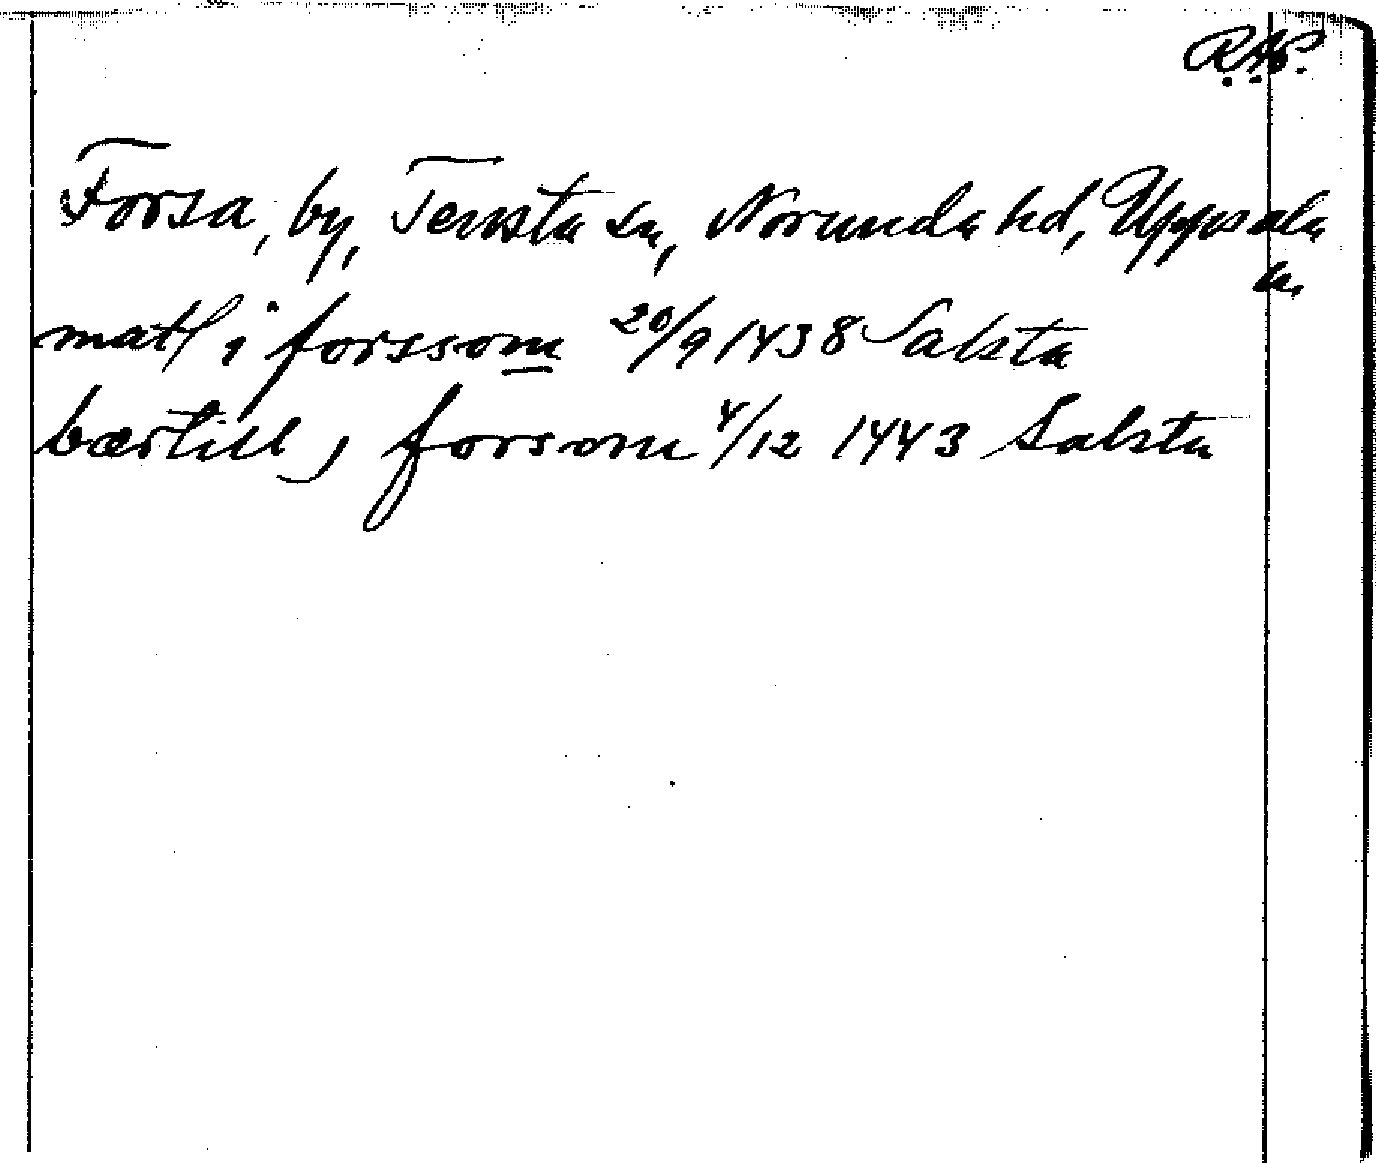 R.A.P.
Forsa, by, Tensta sn, Norunda hd, Uppsala
ln.
matl i forssom 20/9 1438 Salsta
bærtill j forsom 4/12 1443 Salsta